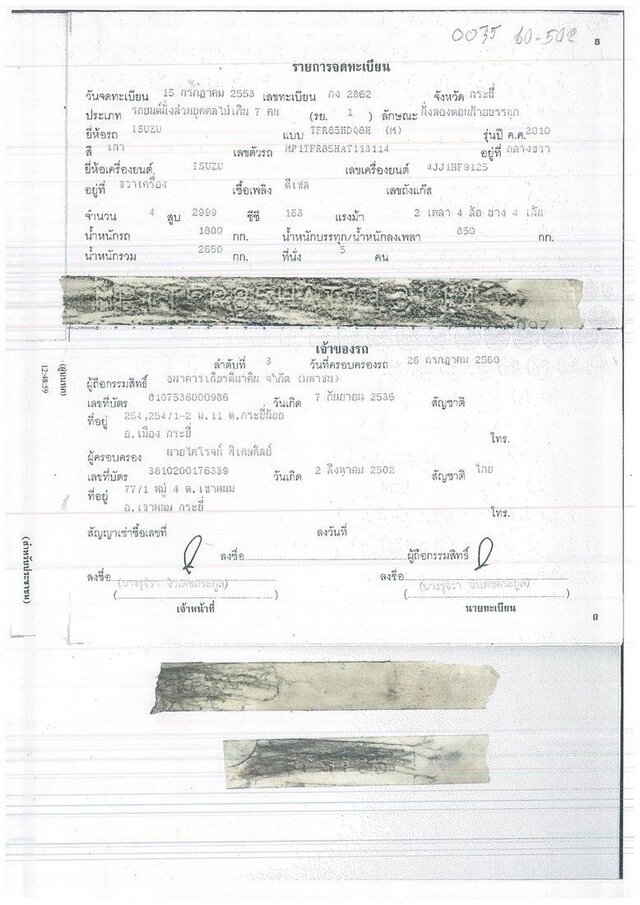 0035 60-50
8
รายการจดทะเบียน
วันจดทะเบียน 15 กรกฎาคม 2553 เลขทะเบียน กง 2862 จังหวัด กระบี่
ประเภท รถยนต์นั่งส่วนบุคคลไม่เกิน 7 คน (รย. 1 ) ลักษณะ นั่งสองตอนท้ายบรรทุก
ยี่ห้อรถ ISUZU แบบ TFR85HD06H (M) รุ่นปี ค.ศ. 2010
สี เทา เลขตัวรถ MP1TFR85HAT113114 อยู่ที่ กลางขวา
ยี่ห้อเครื่องยนต์ ISUZU เลขเครื่องยนต์ 4JJ1HF9125
อยู่ที่ ขวาเครื่อง เชื้อเพลิง ดีเซล เลขถังแก๊ส
จำนวน 4 สูบ 2999 ซีซี 163 แรงม้า 2 เพลา 4 ล้อ ยาง 4 เส้น
น้ำหนักรถ 1800 กก. น้ำหนักบรรทุก/น้ำหนักลงเพลา 850 กก.
น้ำหนักรวม 2650 กก. ที่นั่ง 5 คน
เจ้าของรถ
ลำดับที่ 3 วันที่ครอบครองรถ 26 กรกฎาคม 2560
ผู้ถือกรรมสิทธิ์ ธนาคารเกียรตินาคิน จำกัด (มหาชน)
เลขที่บัตร 0107536000986 วันเกิด 7 กันยายน 2536 สัญชาติ
ที่อยู่ 254,254/1-2 ม.11 ต.กระบี่น้อย
อ.เมือง กระบี่
โทร.
ผู้ครอบครอง นายไพโรจน์
เลขที่บัตร 3810200176339 วันเกิด 2 สิงหาคม 2502 สัญชาติ ไทย
ที่อยู่ 77/1 หมู่ 4 ต.เขาพนม
อ.เขาพนม กระบี่
โทร.
สัญญาเช่าซื้อเลขที่ ลงวันที่
ลงชื่อ ผู้ถือกรรมสิทธิ์
ลงชื่อ ลงชื่อ
เจ้าหน้าที่ นายทะเบียน
8
12:48:59